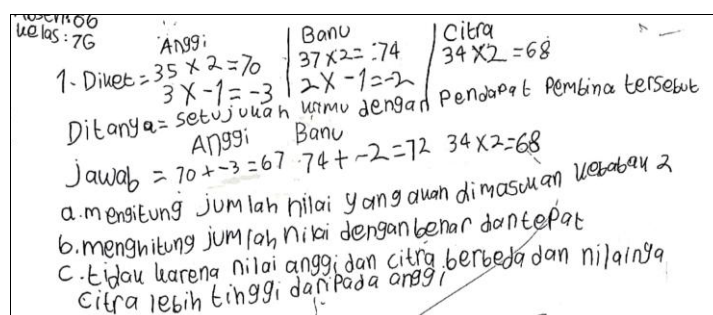 kelas : 7G
Anggi Banu Citra
1. Diket = 35 x 2 = 70 37 x 2 = : 74 34 x 2 = 68
3 x -1 = -3 2 x -1 = -2
Ditanya = setujukah kamu dengan pendapat pembina tersebut
Anggi Banu
Jawab = 70 + -3 = 67 . 74 + -2 = 72 34 x 2 = 68
a. mengitung jumlah nilai yang akan dimasukan kebabak 2
b. menghitung jumlah nilai dengan benar dan tepat
c. tidak karena nilai anggi dan citra berbeda dan nilainya
citra lebih tinggi daripada anggi